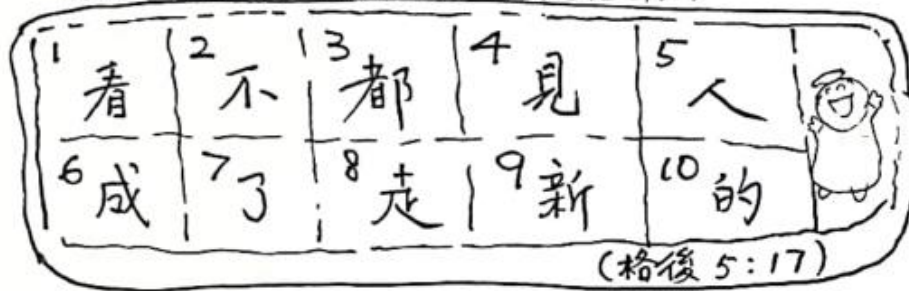 1 看 2 不 3 都 4 見 5 人
6 成 7 了 8 走 9 新 10 的
(格後 5:17)